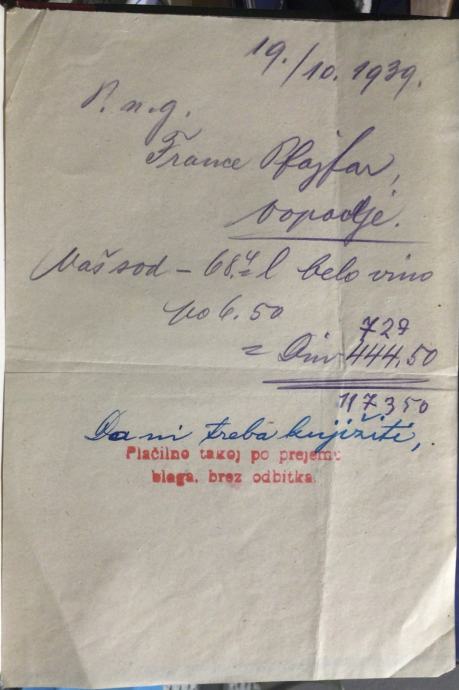 19./10. 1939.
P. n. g.
France Pfajfar,
Vaš sod – 68.4 l belo vino
po 6.50
727
= Din 444,50
117350
Da ni treba knjižiti,
Plačilno takoj po prejemu
blaga, brez odbitka.